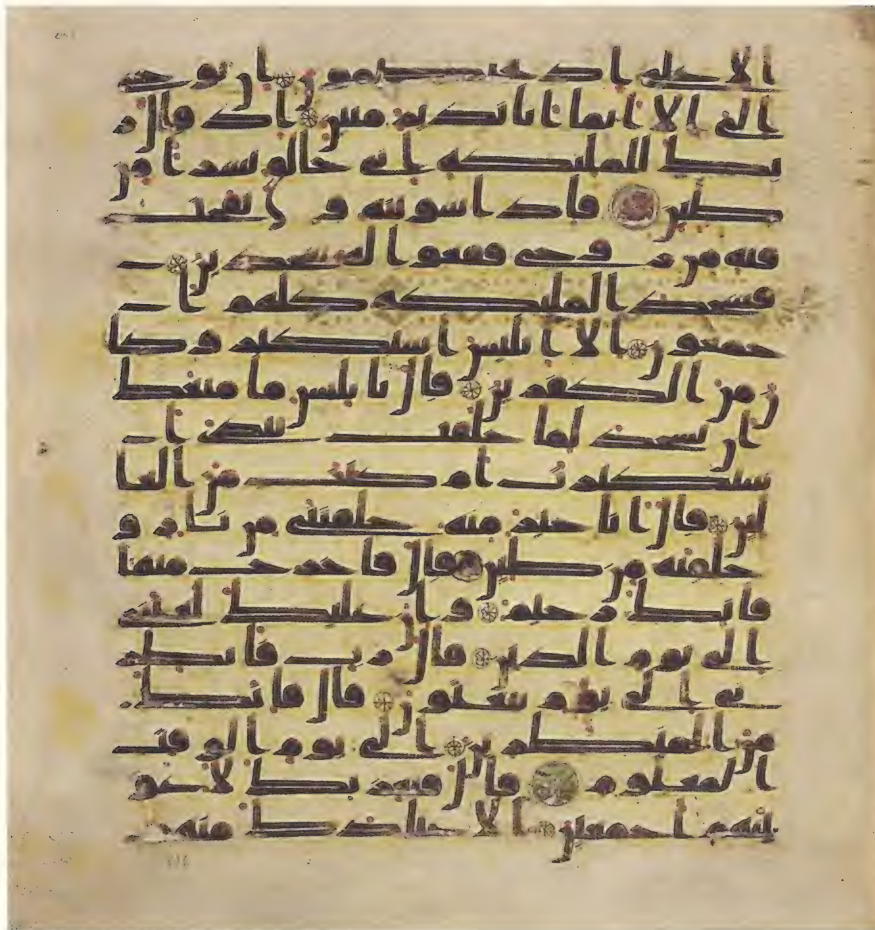 الاعلى اذ يختصمون ان يوحى
الى الا انما انا نذير مبين اذ قال ر
بك للملئكة انى خلق بشرا من
طين فاذا سويته و نفخت
فيه من روحى فقعوا له سجدين
فسجد الملئكة كلهم ا
جمعون الا ابليس استكبر وكا
ن من الكفرين قال يابليس ما منعك
ان تسجد لما خلقت بيدى ا
ستكبرت ام كنت من العا
لين قال انا خير منه خلقتنى من نار و
خلقته من طين قال فاخرج منها
فانك رجيم وان عليك لعنتى
الى يوم الدين قال رب فانظر
نى الى يوم يبعثون قال فانك
من المنظرين الى يوم الوقت
المعلوم قال فبعزتك لاغو
ينهم اجمعين الا عبادك منهم